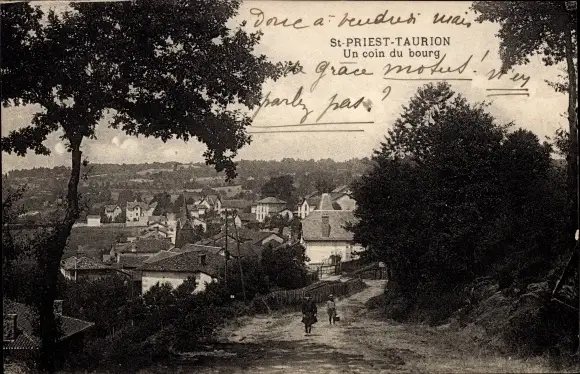 Donc à vendredi mais
St-PRIEST-TAURION
Un coin du bourg
de grace motus! n'ey
parlez pas?